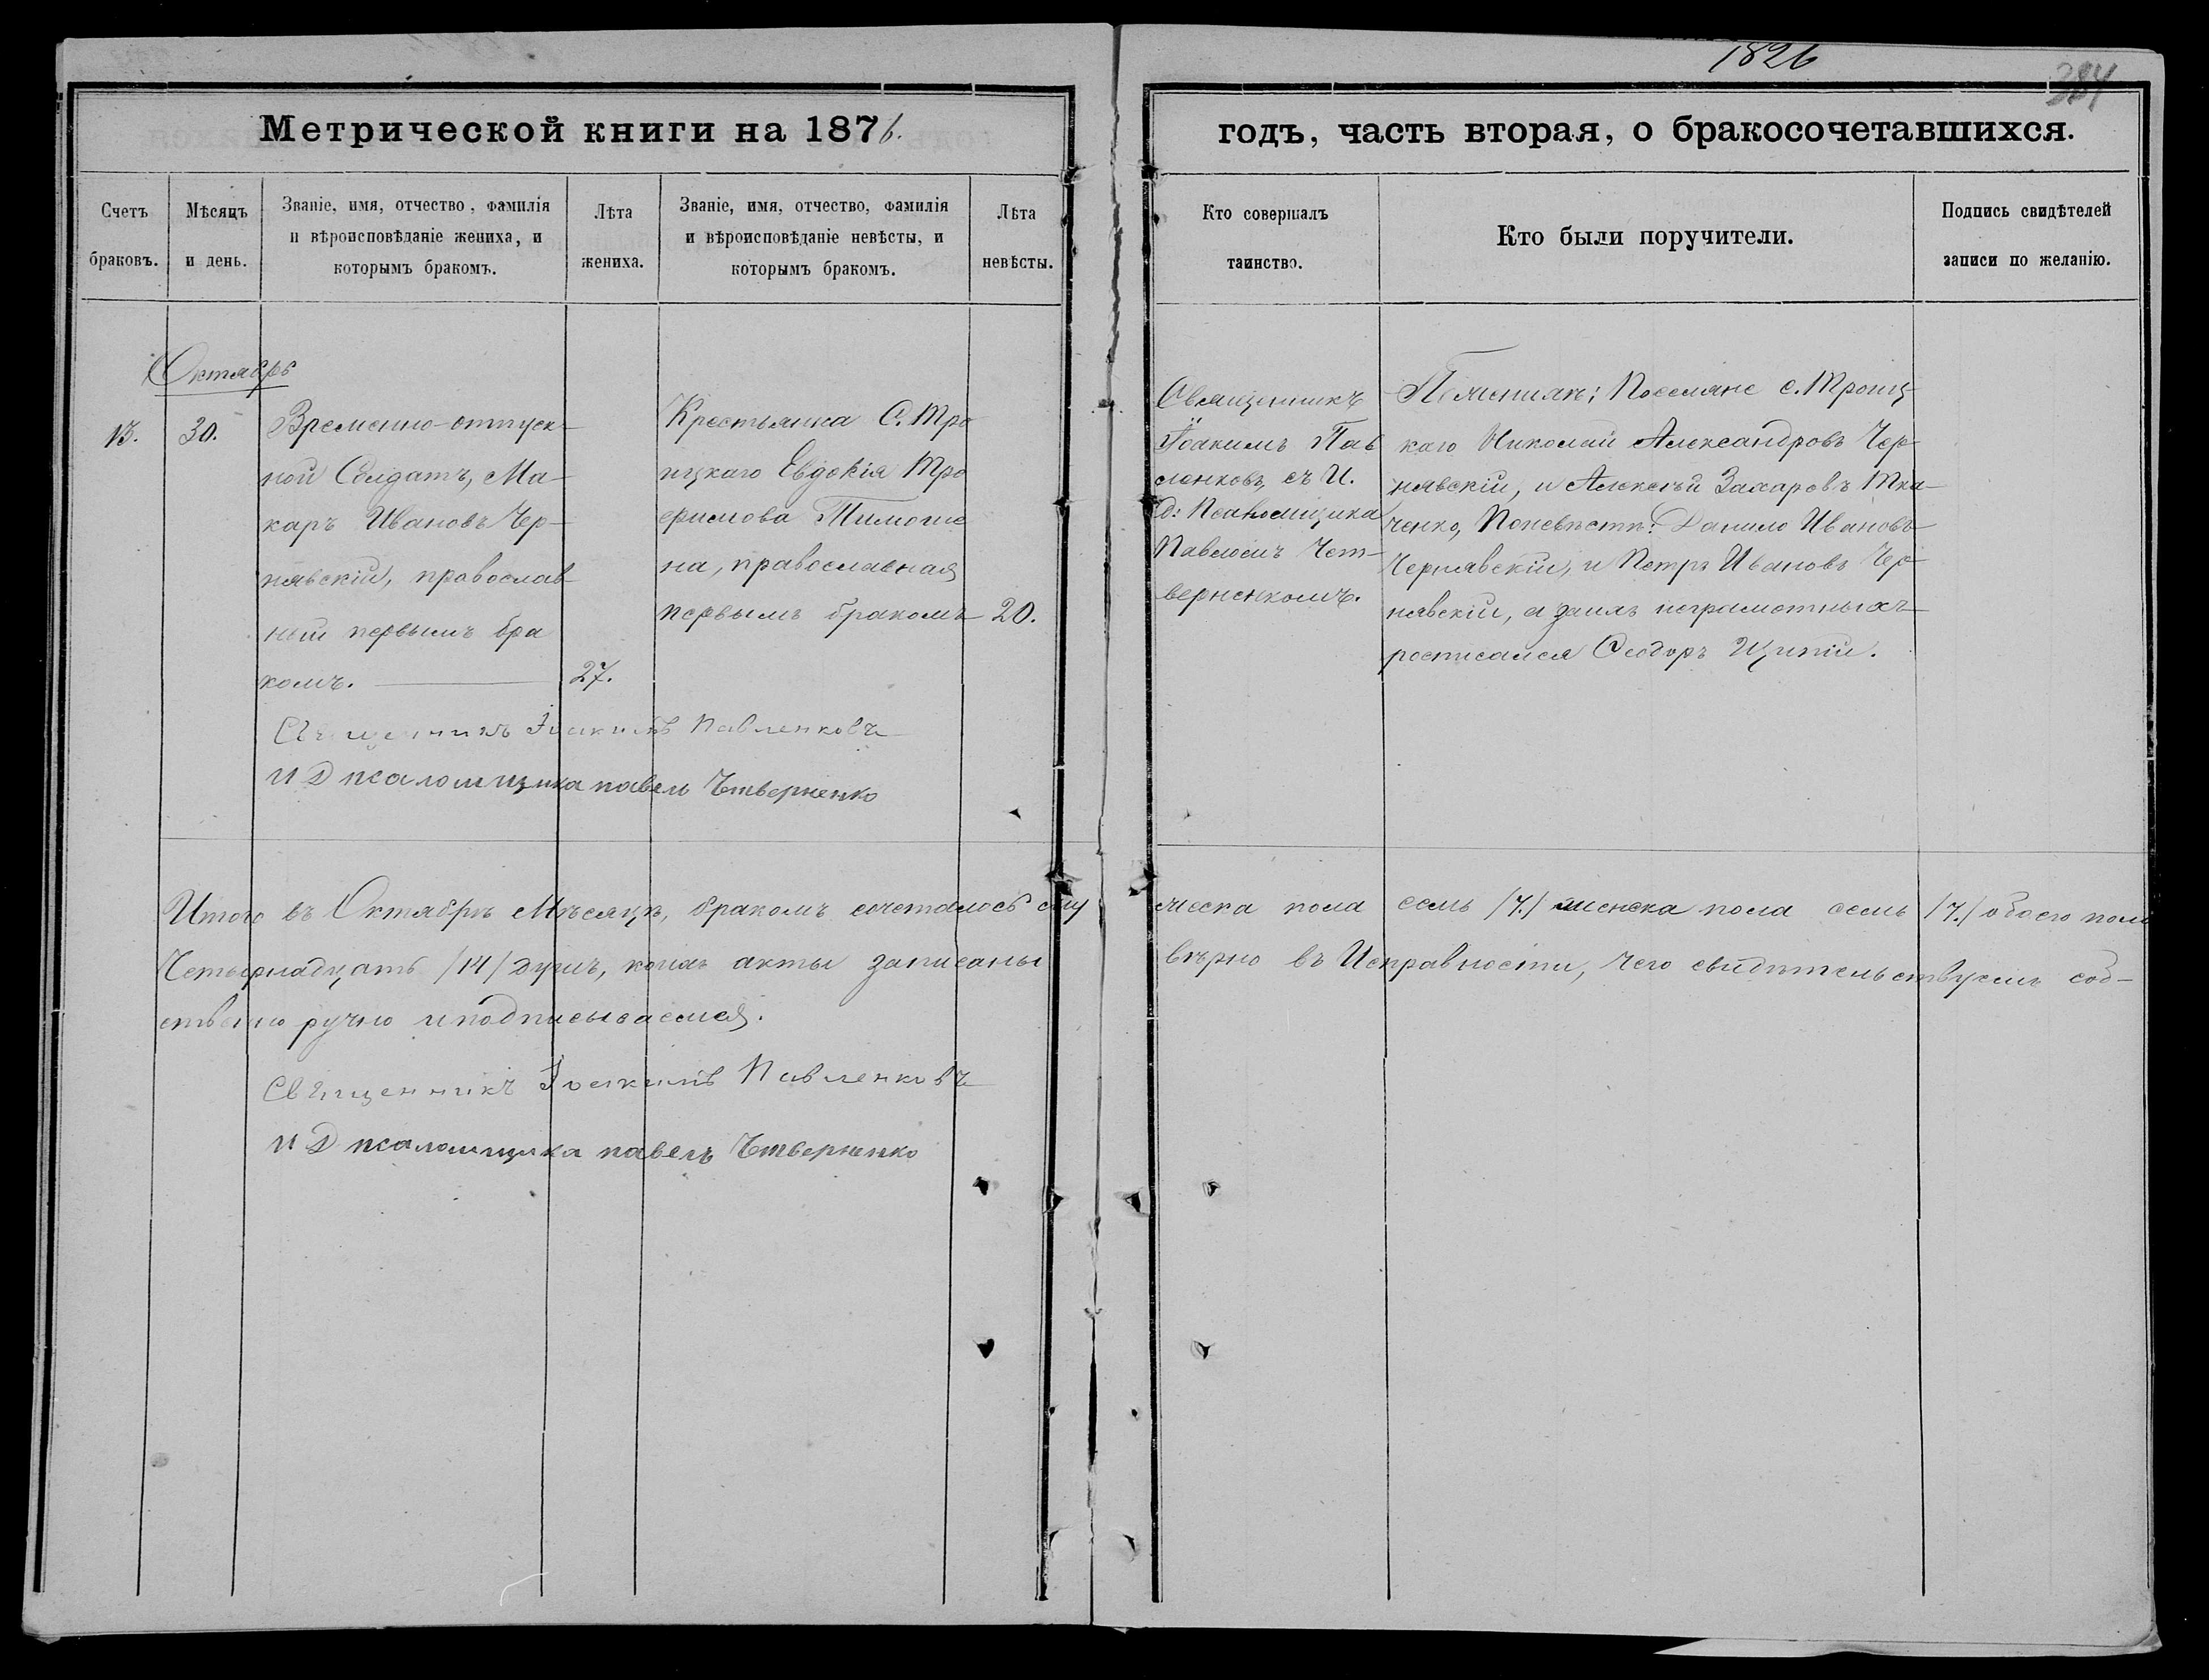 1826
384
Метрической книги на 1876.
годъ, часть вторая, о бракосочетавшихся.
Счетъ
браковъ.
Мѣсяцъ
и день.
Званіе, имя, отчество, фамилія
и вѣроисповѣданіе жениха, и
которымъ бракомъ.
Лѣта
жениха.
Званіе, имя, отчество, фамилія
и вѣроисповѣданіе невѣсты, и
которымъ бракомъ.
Лѣта
невѣсты.
Кто совершалъ
таинство.
Кто были поручители.
Подпись свидѣтелей
записи по желанію.
Октябрь
13.
30.
Временно-отпуск-
ной Солдатъ, Ма-
каръ Ивановъ Чер-
нявскій, православ-
ный первымъ бра
комъ.
27.
Крестьянка С. Тро
ицкаго Евдокія Тро
фимова Тимоше
на, православная
первымъ бракомъ
20.
Священникъ
Іоакимъ Пав
ленковъ, съ И.
д: Псаломщика
Павломъ Чет-
верненкомъ.
По женихѣ: Поселяне с. Троиц-
каго Николай Александровъ Чер-
нявскій, и Алексѣй Захаровъ Тка-
ченко, По невѣстѣ: Данило Ивановъ
Чернявскій, и Петръ Ивановъ Чер-
нявскій, а за нихъ неграмотныхъ
росписался Ѳеодоръ
Священникъ Іоакимъ Павленковъ
И Д псаломщика павелъ Чтверненко
Итого въ Октябрѣ Мѣсяцѣ, бракомъ сочеталось му
жеска пола семь /7./ женска пола семь /7./ обоего пола
Четырнадцать /14/ душъ, коихъ акты записаны
вѣрно въ Исправности, чего свидѣтельствуемъ соб-
ственно ручно и подписываемся.
Священникъ Іоакимъ Павленковъ
И Д псаломщика павелъ Чтверненко